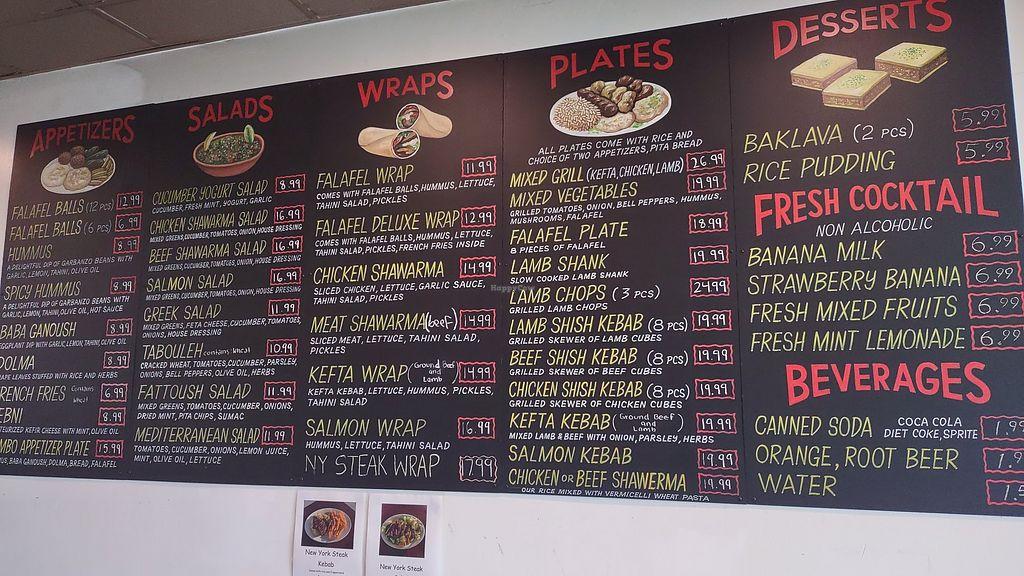 APPETIZERS
FALAFEL BALLS (12 PCS) 12.99
FALAFEL BALLS (6 PCS) 6.99
HUMMUS 8.99
A DELIGHTFUL DIP OF GARBANZO BEANS WITH
GARLIC, LEMON, TAHINI, OLIVE OIL
SPICY HUMMUS 8.99
A DELIGHTFUL DIP OF GARBANZO BEANS WITH
GARLIC, LEMON, TAHINI, OLIVE OIL, HOT SAUCE
BABA GANOUSH 8.99
EGGPLANT DIP WITH GARLIC, LEMON, TAHINI, OLIVE OIL
DOLMA 8.99
APE LEAVES STUFFED WITH RICE AND HERBS
RENCH FRIES contains wheat 6.99
EBNI 8.99
TEURIZED KEFIR CHEESE WITH MINT, OLIVE OIL
MBO APPETIZER PLATE 15.99
US, BABA GANOUSH, DOLMA, BREAD, FALAFEL
SALADS
CUCUMBER YOGURT SALAD 8.99
CUCUMBER, FRESH MINT, YOGURT, GARLIC
CHICKEN SHAWARMA SALAD 16.99
MIXED GREENS, CUCUMBER, TOMATOES, ONION, HOUSE DRESSING
BEEF SHAWARMA SALAD 16.99
MIXED GREENS, CUCUMBER, TOMATOES, ONION, HOUSE DRESSING
SALMON SALAD 16.99
MIXED GREENS, CUCUMBER, TOMATOES, ONION, HOUSE DRESSING
GREEK SALAD 11.99
MIXED GREENS, FETA CHEESE, CUCUMBER, TOMATOES,
ONIONS, HOUSE DRESSING
TABOULEH contains wheat 10.99
CRACKED WHEAT, TOMATOES, CUCUMBER, PARSLEY,
ONIONS, BELL PEPPERS, OLIVE OIL, HERBS
FATTOUSH SALAD 11.99
MIXED GREENS, TOMATOES, CUCUMBER, ONIONS,
DRIED MINT, PITA CHIPS, SUMAC
MEDITERRANEAN SALAD 11.99
TOMATOES, CUCUMBER, ONIONS, LEMON JUICE,
MINT, OLIVE OIL, LETTUCE
WRAPS
FALAFEL WRAP 11.99
COMES WITH FALAFEL BALLS, HUMMUS, LETTUCE,
TAHINI SALAD, PICKLES
FALAFEL DELUXE WRAP 12.99
COMES WITH FALAFEL BALLS, HUMMUS, LETTUCE,
TAHINI SALAD, PICKLES, FRENCH FRIES INSIDE
CHICKEN SHAWARMA 14.99
SLICED CHICKEN, LETTUCE, GARLIC SAUCE,
TAHINI SALAD, PICKLES
MEAT SHAWARMA (beef) 14.99
SLICED MEAT, LETTUCE, TAHINI SALAD,
PICKLES
KEFTA WRAP (Ground Beef and Lamb) 14.99
KEFTA KEBAB, LETTUCE, HUMMUS, PICKLES,
TAHINI SALAD
SALMON WRAP 16.99
HUMMUS, LETTUCE, TAHINI SALAD
NY STEAK WRAP 17.99
PLATES
ALL PLATES COME WITH RICE AND
CHOICE OF TWO APPETIZERS, PITA BREAD
MIXED GRILL (KEFTA, CHICKEN, LAMB) 26.99
MIXED VEGETABLES 19.99
GRILLED TOMATOES, ONION, BELL PEPPERS, HUMMUS,
MUSHROOMS, FALAFEL
FALAFEL PLATE 18.99
8 PIECES OF FALAFEL
LAMB SHANK 19.99
SLOW COOKED LAMB SHANK
LAMB CHOPS (3 PCS) 24.99
GRILLED LAMB CHOPS
LAMB SHISH KEBAB (8 PCS) 19.99
GRILLED SKEWER OF LAMB CUBES
BEEF SHISH KEBAB (8 PCS) 19.99
GRILLED SKEWER OF BEEF CUBES
CHICKEN SHISH KEBAB (8 PCS) 19.99
GRILLED SKEWER OF CHICKEN CUBES
KEFTA KEBAB (Ground Beef and Lamb) 19.99
MIXED LAMB & BEEF WITH ONION, PARSLEY, HERBS
SALMON KEBAB 19.99
CHICKEN OR BEEF SHAWERMA 19.99
OUR RICE MIXED WITH VERMICELLI WHEAT PASTA
DESSERTS
BAKLAVA (2 PCS) 5.99
RICE PUDDING 5.99
FRESH COCKTAIL
NON ALCOHOLIC
BANANA MILK 6.99
STRAWBERRY BANANA 6.99
FRESH MIXED FRUITS 6.99
FRESH MINT LEMONADE 6.99
BEVERAGES
CANNED SODA COCA COLA DIET COKE, SPRITE 1.9
ORANGE, ROOT BEER 1.9
WATER 1.5
New York Steak
Kebab
New York Steak